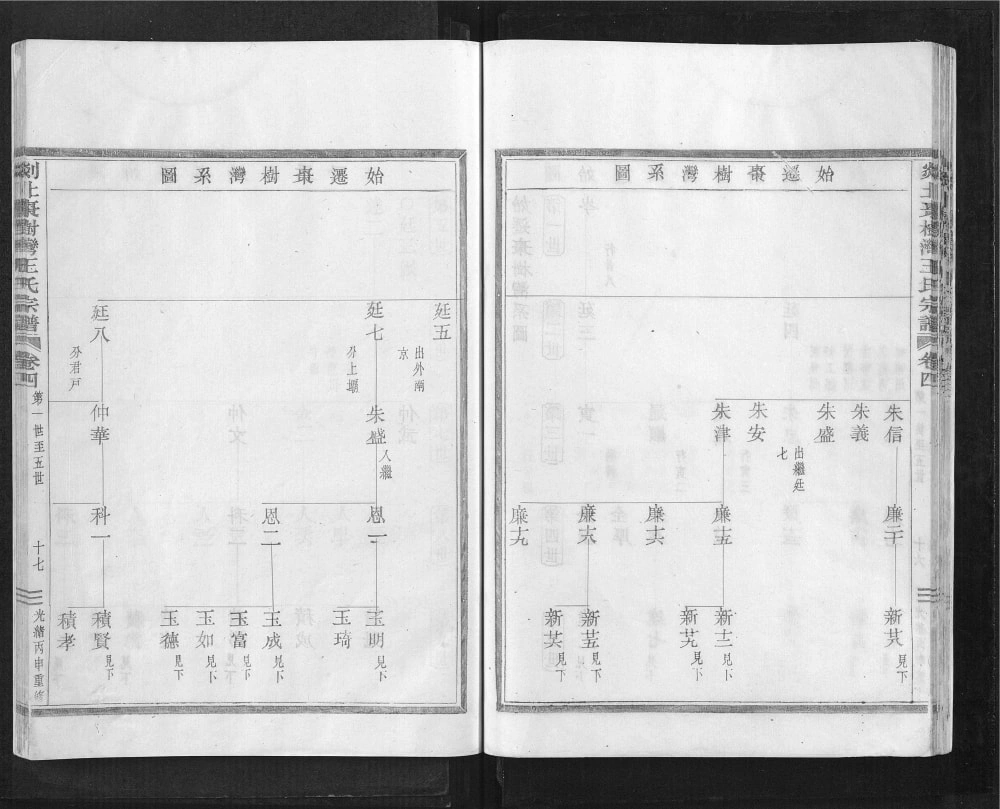 始遷棗樹灣系圖
朱信
朱義
朱盛
出繼廷七
朱安
朱津
廉二十
廉十五
廉十六
廉
廉十九
新
見下
新
見下
新
新
見下
新
見下
始遷棗樹灣系圖
廷五
出外南京
廷七
分上堰
廷八
分君戸
朱盛
入繼
仲華
恩一
恩二
科一
玉明
見下
玉琦
玉成
見下
玉富
見下
玉如
見下
玉德
見下
積賢
見下
積孝
剡北棗樹灣王氏宗譜
卷四
第一世至五世
十七
光緒丙申重修